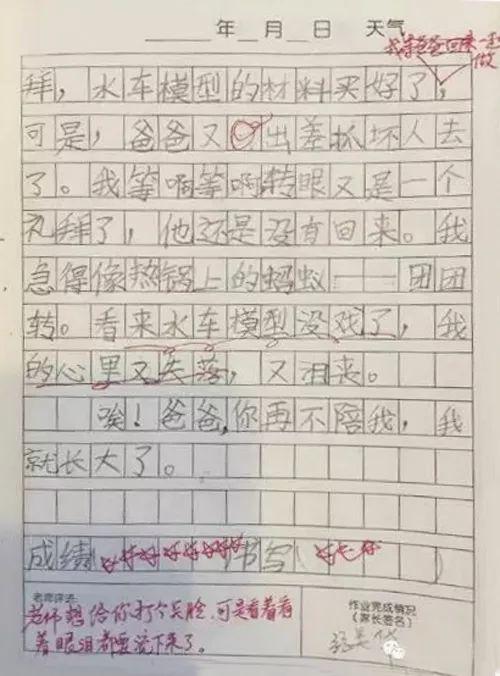 年 月 日 天气
我等爸爸回来一起做
拜，水车模型的材料买好了，
可是，爸爸又出差抓坏人去
了。我等啊等啊转眼又是一个
礼拜了，他还是没有回来。我
急得像热锅上的蚂蚁——团团
转。看来水车模型没戏了，我
的心里又失落，又沮丧。
唉！爸爸，你再不陪我，我
就长大了。
成绩（好好好好好好好）书写（好好好）
老师评语
老师想给你打个笑脸，可是看着看
着眼泪都要流下来了。
作业完成情况
（家长签名）